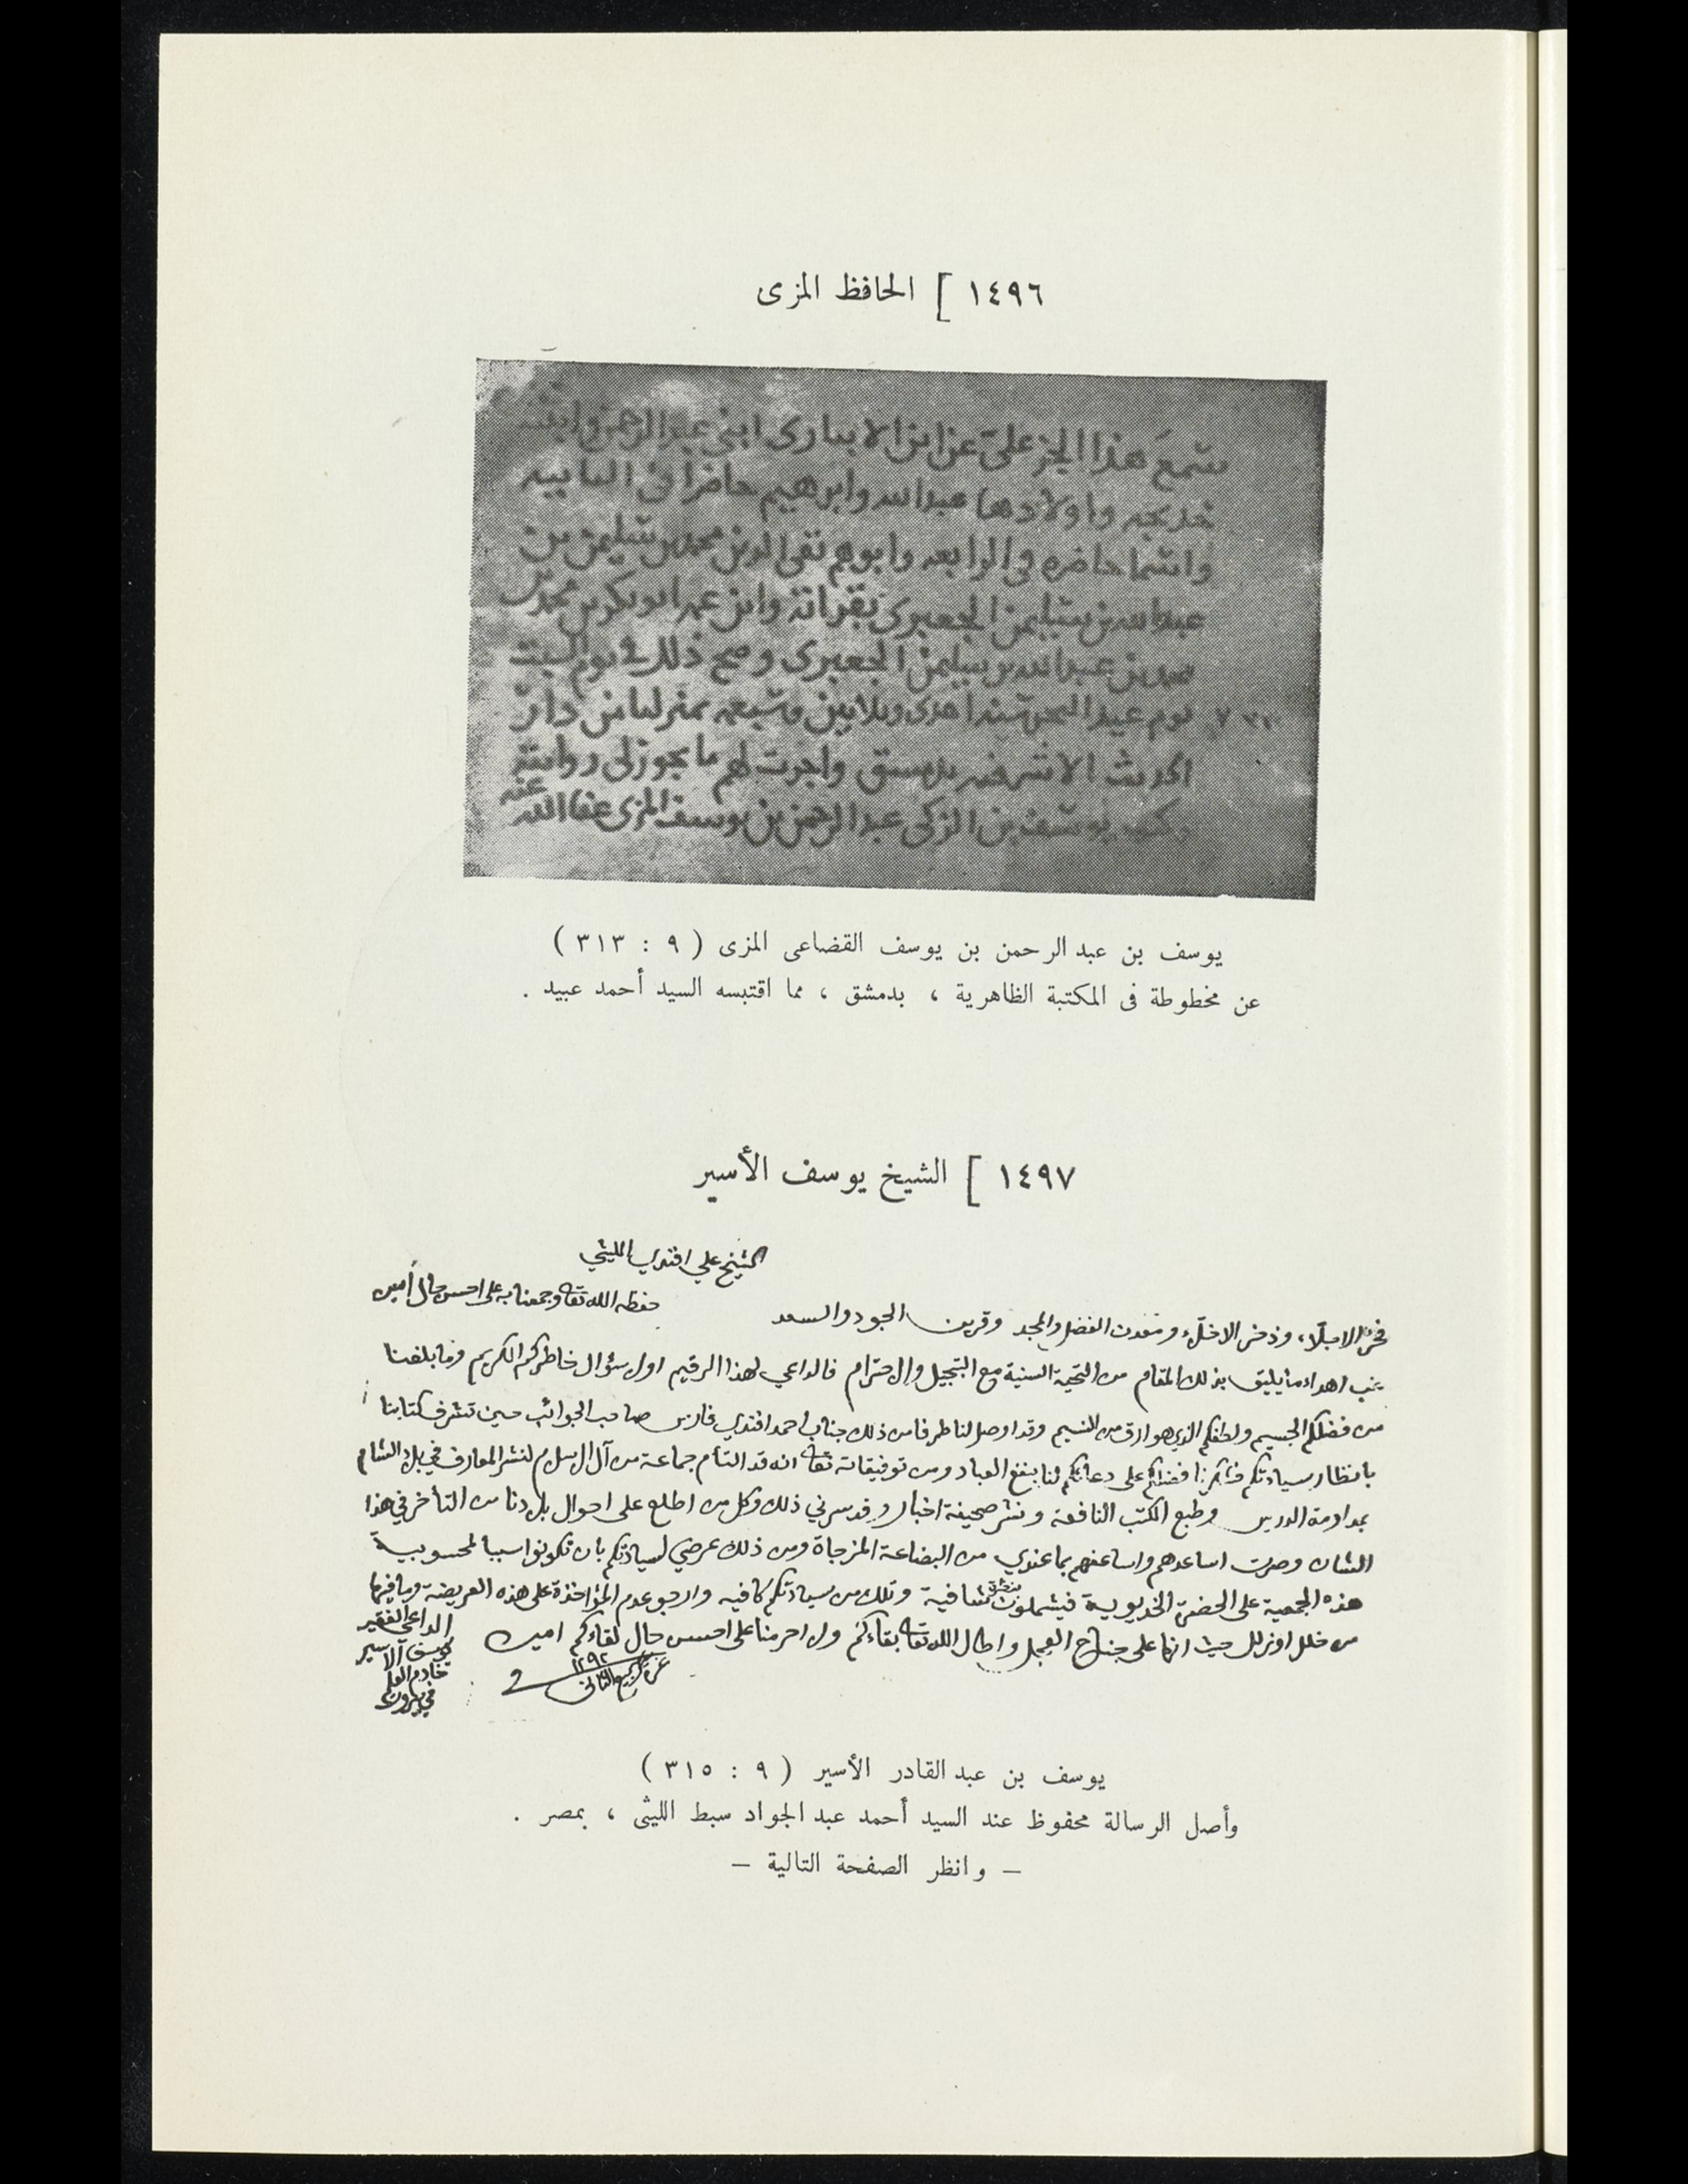 ١٤٩٦ ] الحافظ المزى
سمع هذا الجز على عن ابن الانبارى ابنى عبد الرحمن وابنته
خديجه واولادها عبد الله وابرهيم حاضرا فى الثانيه
واسما حاضره فى الرابعه وابوهم تقى الدين محمد بن سليمن بن
عبد الله بن سليمن الجعبرى بقراته وابن عمه ابو بكر بن محمد بن
بن عبد الله بن سليمن الجعبرى وصح ذلك فى يوم السبت
يوم عيد النحر سنه احدى وثلاثين وسبعمه بمنزلنا من دار
الحديث الاشرفيه بدمشق واجزت لهم ما يجوز لى روايته
وكتب يوسف بن الزكى عبد الرحمن بن يوسف المزى عفا الله عنه
يوسف بن عبد الرحمن بن يوسف القضاعى المزى ( ٩ : ٣١٣ )
عن مخطوطة فى المكتبة الظاهرية ، بدمشق ، مما اقتبسه السيد أحمد عبيد .
١٤٩٧ ] الشيخ يوسف الأسير
الشيخ علي افندي الليثي
حفظه الله تعالى وجمعنا به على احسن حال أمين
فخر الاجلاء وذخر الاخلاء ومعدن الفضل والمجد وقرين الجود والسعد
غب اهداء ما يليق بذلك المقام من التحية السنية مع التبجيل والاحترام فالداعي لهذا الرقيم اولا سؤال خاطركم الكريم وما بلغنا
من فضلكم الجسيم ولطفكم الذي هو ارق من النسيم وقد اوصل لنا طرفا من ذلك جناب احمد افندي فارس صاحب الجوائب حين تشرف كتابنا
بانظار سيادتكم فشكرنا فضلكم على دعائكم لنا بنفع العباد ومن توفيقاته تعالى انه قد التأم جماعة من آل الاسلام لنشر المعارف في بلاد الشام
بمداومة الدروس وطبع الكتب النافعة ونشر صحيفة اخبار وقد سرني ذلك وكل من اطلع على احوال بلادنا من التأخر في هذا
الشان وصرت اساعدهم واساعفهم بما عندي من البضاعة المزجاة ومن ذلك عرضي لسيادتكم بان تكونوا سببا لمحسوبية
هذه الجمعية على الحضرة الخديوية فيشملون شافية وتلك من سيادتكم كافيه وارجو عدم المؤاخذة على هذه العريضة وما فيها
من خلل او زلل حيث انها على جناح العجل واطال الله تعالى بقاءكم ولا احرمنا على احسن حال لقاءكم امين
في غرة ربيع الثاني ١٢٩٢
الداعي الفقير
يوسف الاسير
خادم العلم
في بيروت
يوسف بن عبد القادر الأسير ( ٩ : ٣١٥ )
وأصل الرسالة محفوظ عند السيد أحمد عبد الجواد سبط الليثى ، بمصر .
– وانظر الصفحة التالية –